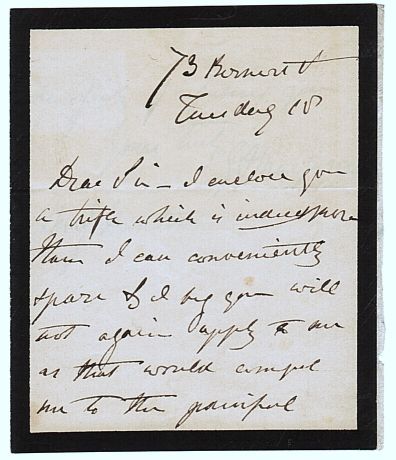 73
Tuesday 18
Dear Sir – I enclose you
a trifle which is indeed more
than I can conveniently
spare & I beg you will
not again apply to me
as that would compel
me to the painful